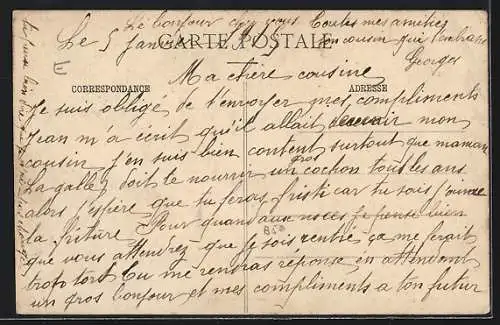 Le bonjour chez vous Toutes mes amitiés
Le 5 Janvier
CARTE POSTALE
ton cousin qui t'embrasse
Georges
E
CORRESPONDANCE
ADRESSE
Ma chère cousine
Je suis obligé de t'envoyer mes compliments
Jean m'a écrit qu'il allait devenir mon
cousin j'en suis bien content surtout que maman
La gallez doit te nourrir un gros cochon tous les ans
alors j'espère que tu feras fristi car tu sais j'aime
la friture Pour quand aux noces je pense bien
850
que vous attendrez que je sois rentré ça me ferait
trop tort Tu me rendras réponse en attendant
un gros bonjour et mes compliments a ton futur